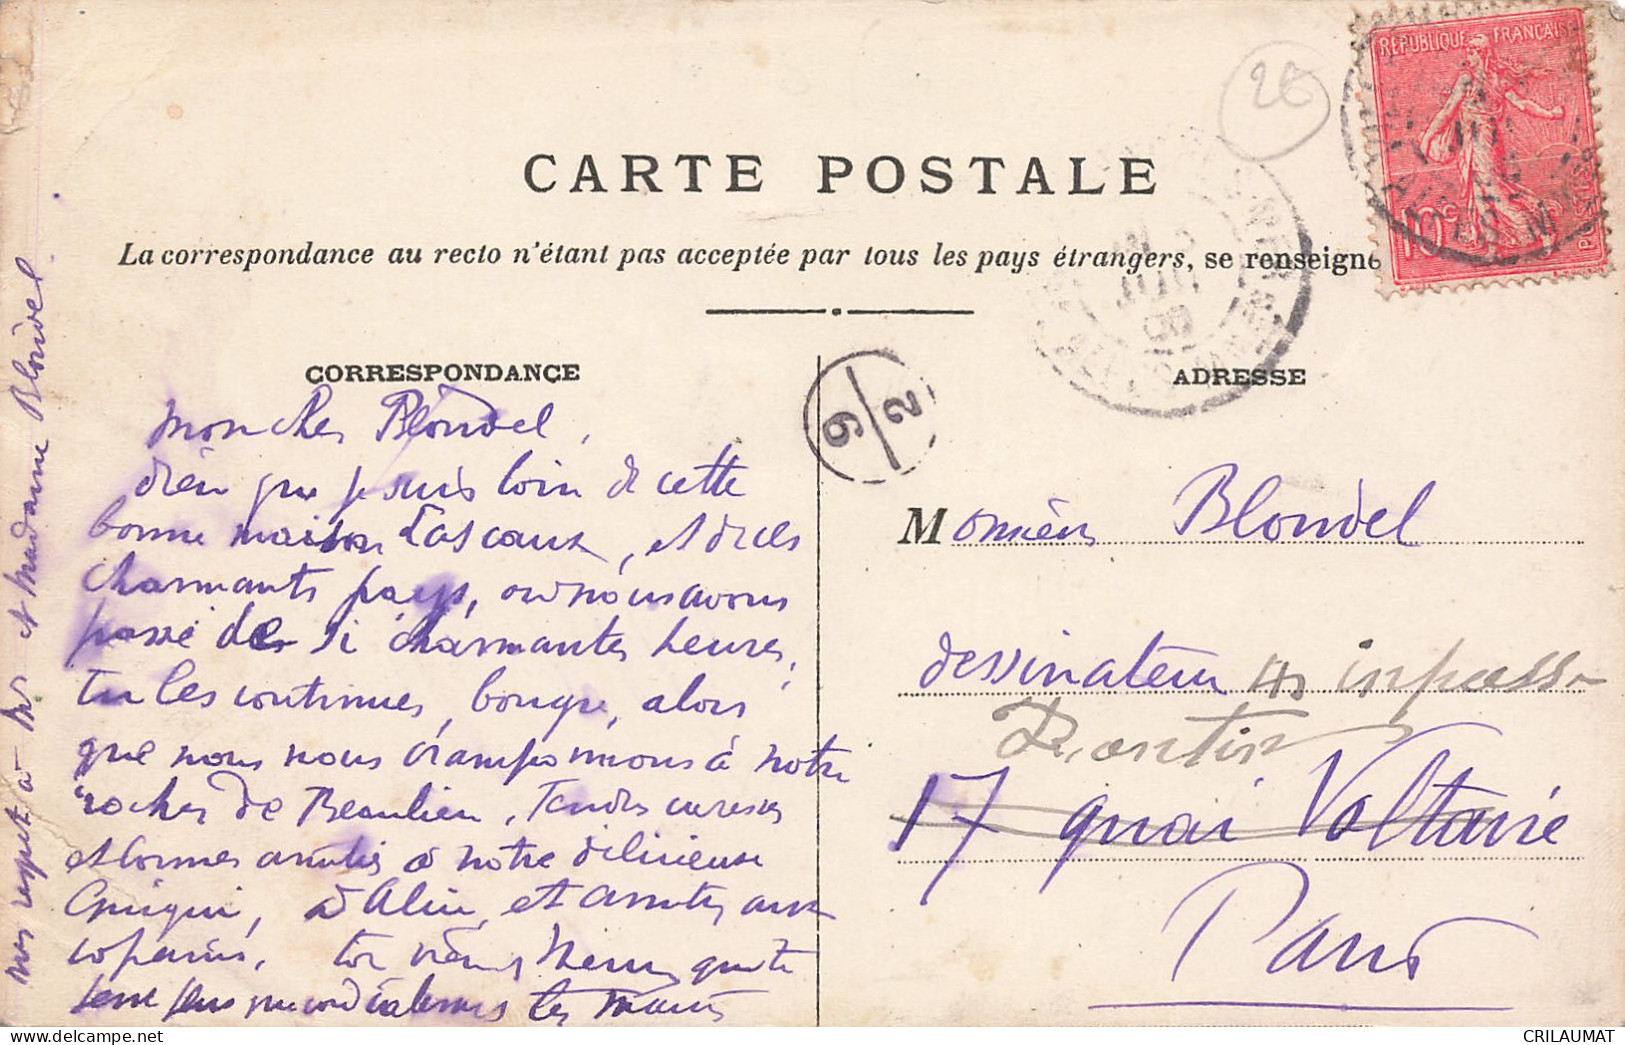 REPUBLIQUE FRANÇAISE
10c POSTES
26
CARTE POSTALE
La correspondance au recto n'étant pas acceptée par tous les pays étrangers, se renseigne
CORRESPONDANCE
ADRESSE
9/2
Mon cher Blondel,
bien que je suis loin de cette
bonne maison Lascaux, et de ces
charmants pays, où nous avons
passé de si charmantes heures,
tu les continues, bougre, alors
que nous nous cramponnons à notre
rocher de Beaulieu. Tendres caresses
et bonnes amitiés à notre délicieuse
Guigui, à Aline, et amitiés aux
copains, ton vieux Henry qui te
serre plus que cordialement les mains
nos respects à Mr et Madame Blondel.
Monsieur Blondel
dessinateur
impasse
17 quai Voltaire
Paris
CRILAUMAT